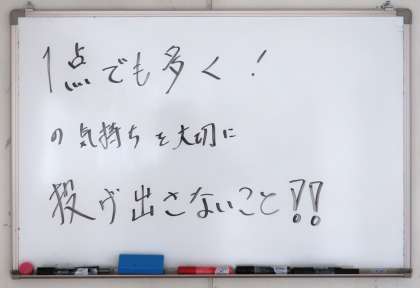 1点でも多く!
の気持ちを大切に
投げ出さないこと!!